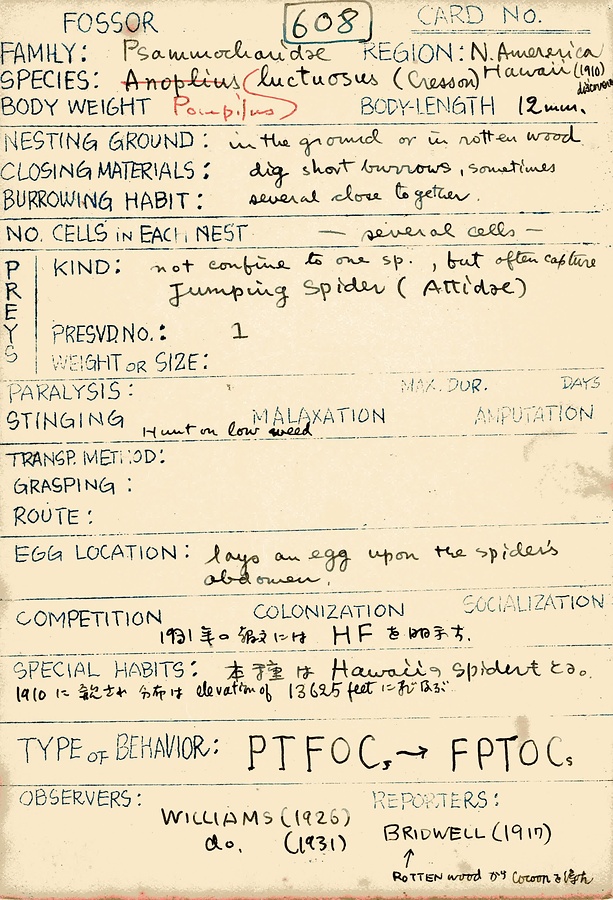 FOSSOR 608 CARD NO.
FAMILY: Psammocharidae REGION: N. Amererica
SPECIES: Anoplius luctuosus (Cresson) Hawaii (1910)
BODY WEIGHT Pompilus BODY-LENGTH 12mm.
NESTING GROUND: in the ground or in rotten wood
CLOSING MATERIALS: dig short burrows, sometimes
BURROWING HABIT: several close together.
NO. CELLS IN EACH NEST — several cells —
PREYS
KIND: not confine to one sp., but often capture
Jumping Spider (Attidae)
PRESVD. NO.: 1
WEIGHT OR SIZE:
PARALYSIS: MAX. DUR. DAYS
STINGING MALAXATION AMPUTATION
Hunt on low weed
TRANSP. METHOD:
GRASPING:
ROUTE:
EGG LOCATION: lays an egg upon the spider's
abdomen.
COMPETITION COLONIZATION SOCIALIZATION
1931年の論文には HF を
SPECIAL HABITS: 本種は Hawaiiの spiderもとる。
1910 に 分布は elevation of 13625 feet に及ぶ
TYPE OF BEHAVIOR: PTFOCs → FPTOCs
OBSERVERS: REPORTERS:
WILLIAMS (1926)
do. (1931) BRIDWELL (1917)
↑
ROTTEN wood から Cocoon を